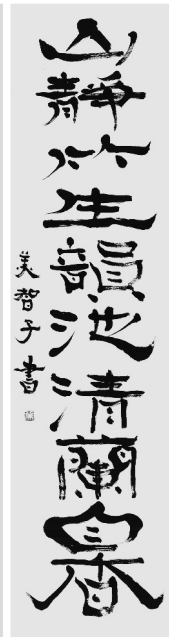 山靜竹生韻池清蘭自香
美智子書